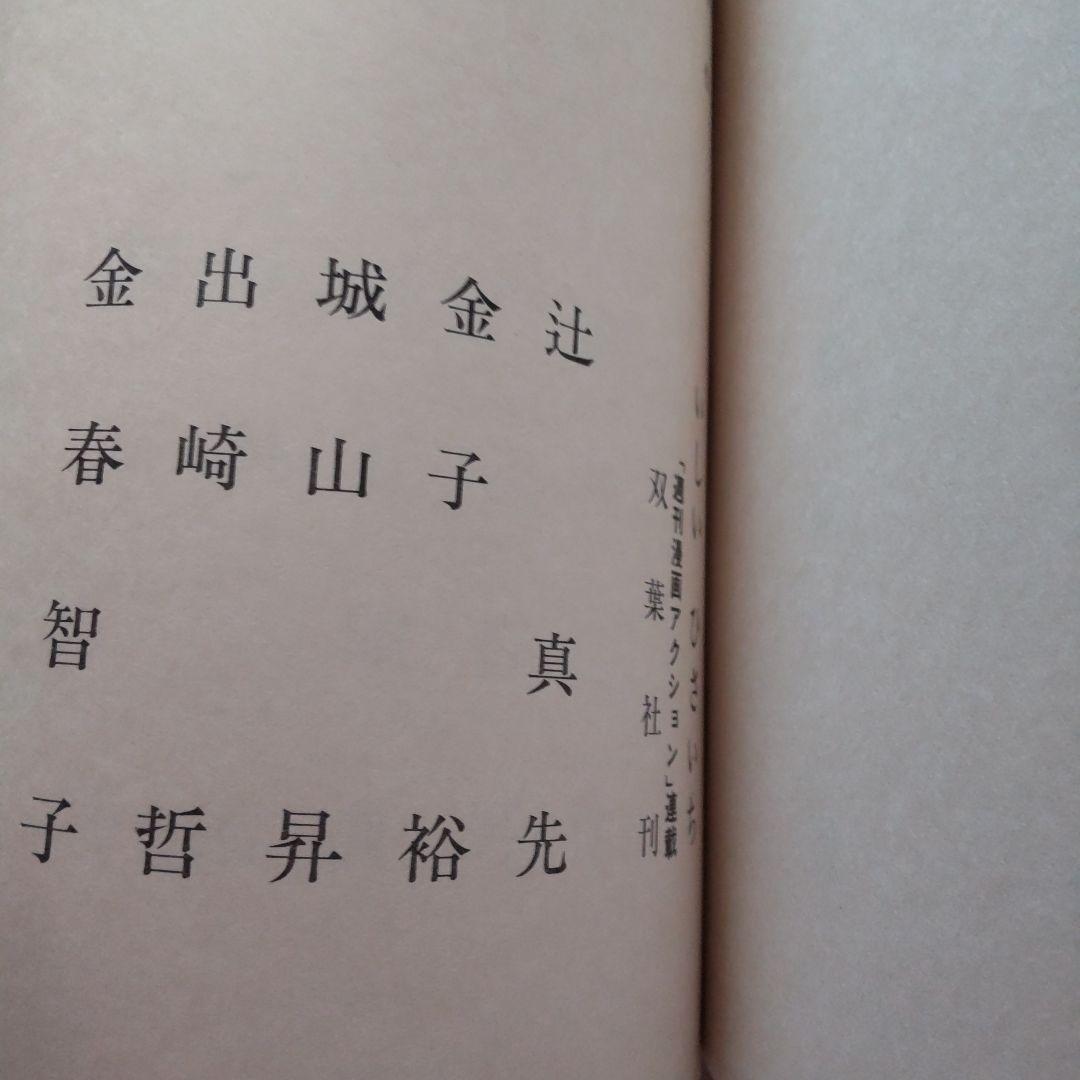 いしい ひさいち
「週刊漫画アクション」連載
双葉社刊
辻 真先
金子 裕
城山 昇
出崎 哲
金春智子